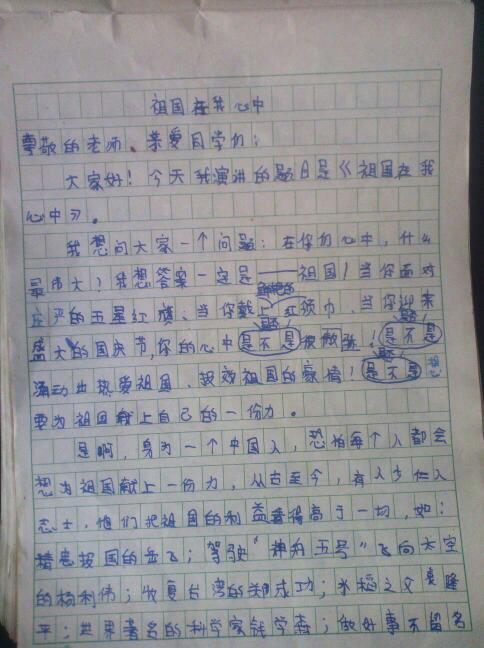 祖国在我心中
尊敬的老师、亲爱同学们：
大家好！今天我演讲的题目是《祖国在我
心中》。
我想问大家一个问题：在你们心中，什么
最伟大？我想答案一定是——祖国！当你面对
庄严的五星红旗、当你戴上红领巾、当你迎来
盛大的国庆节,你的心中是不是被！是不是
涌动出热爱祖国、报效祖国的豪情！是不是想
要为祖国献上自己的一份力。
是啊，身为一个中国人，恐怕每个人都会
想为祖国献上一份力，从古至今，有多少仁人
志士，他们把祖国的利益看得高于一切，如：
精忠报国的岳飞；驾驶“神舟五号”飞向太空
的杨利伟；收复台湾的郑成功；水稻之父袁隆
平；世界著名的科学家钱学森；做好事不留名